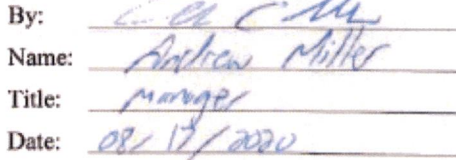 By:
Name: Andrew Miller
Title: Manager
Date: 08/17/2020